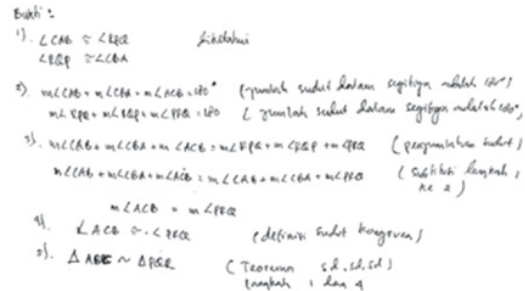 Bukti :
1). ∠CAB ≅ ∠RPQ diketahui
∠RQP ≅ ∠CBA
2). m∠CAB + m∠CBA + m∠ACB = 180° (jumlah sudut dalam segitiga adalah 180°)
m∠RPQ + m∠RQP + m∠PRQ = 180 (jumlah sudut dalam segitiga adalah 180°)
3). m∠CAB + m∠CBA + m∠ACB = m∠RPQ + m∠RQP + m∠PRQ (penjumlahan sudut)
m∠CAB + m∠CBA + m∠ACB = m∠CAB + m∠CBA + m∠PRQ (substitusi langkah 1
ke 2)
m∠ACB = m∠PRQ
4). ∠ACB ≅ ∠PRQ (definisi sudut kongruen)
5). Δ ABC ~ Δ PQR (Teorema sd, sd, sd)
langkah 1 dan 4